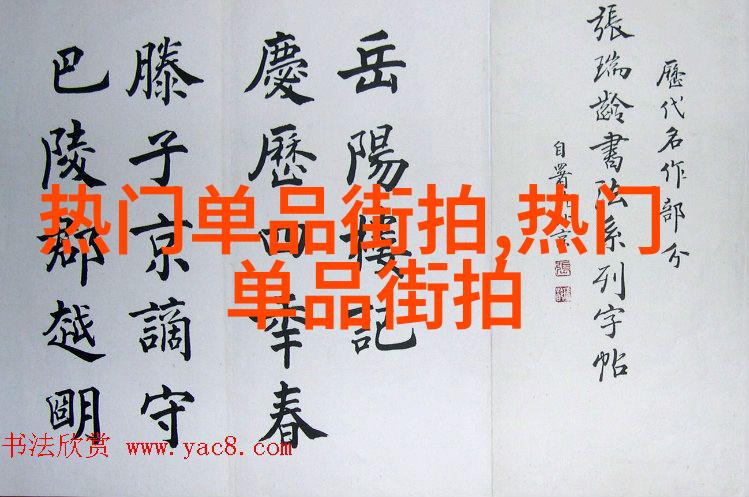 歷代名作部分
張瑞齡書法系列字帖
自署
岳陽樓記
慶歷四年春
滕子京謫守
巴陵郡越明
热门单品街拍,热门
单品街拍
书法欣赏 www.yac8.com